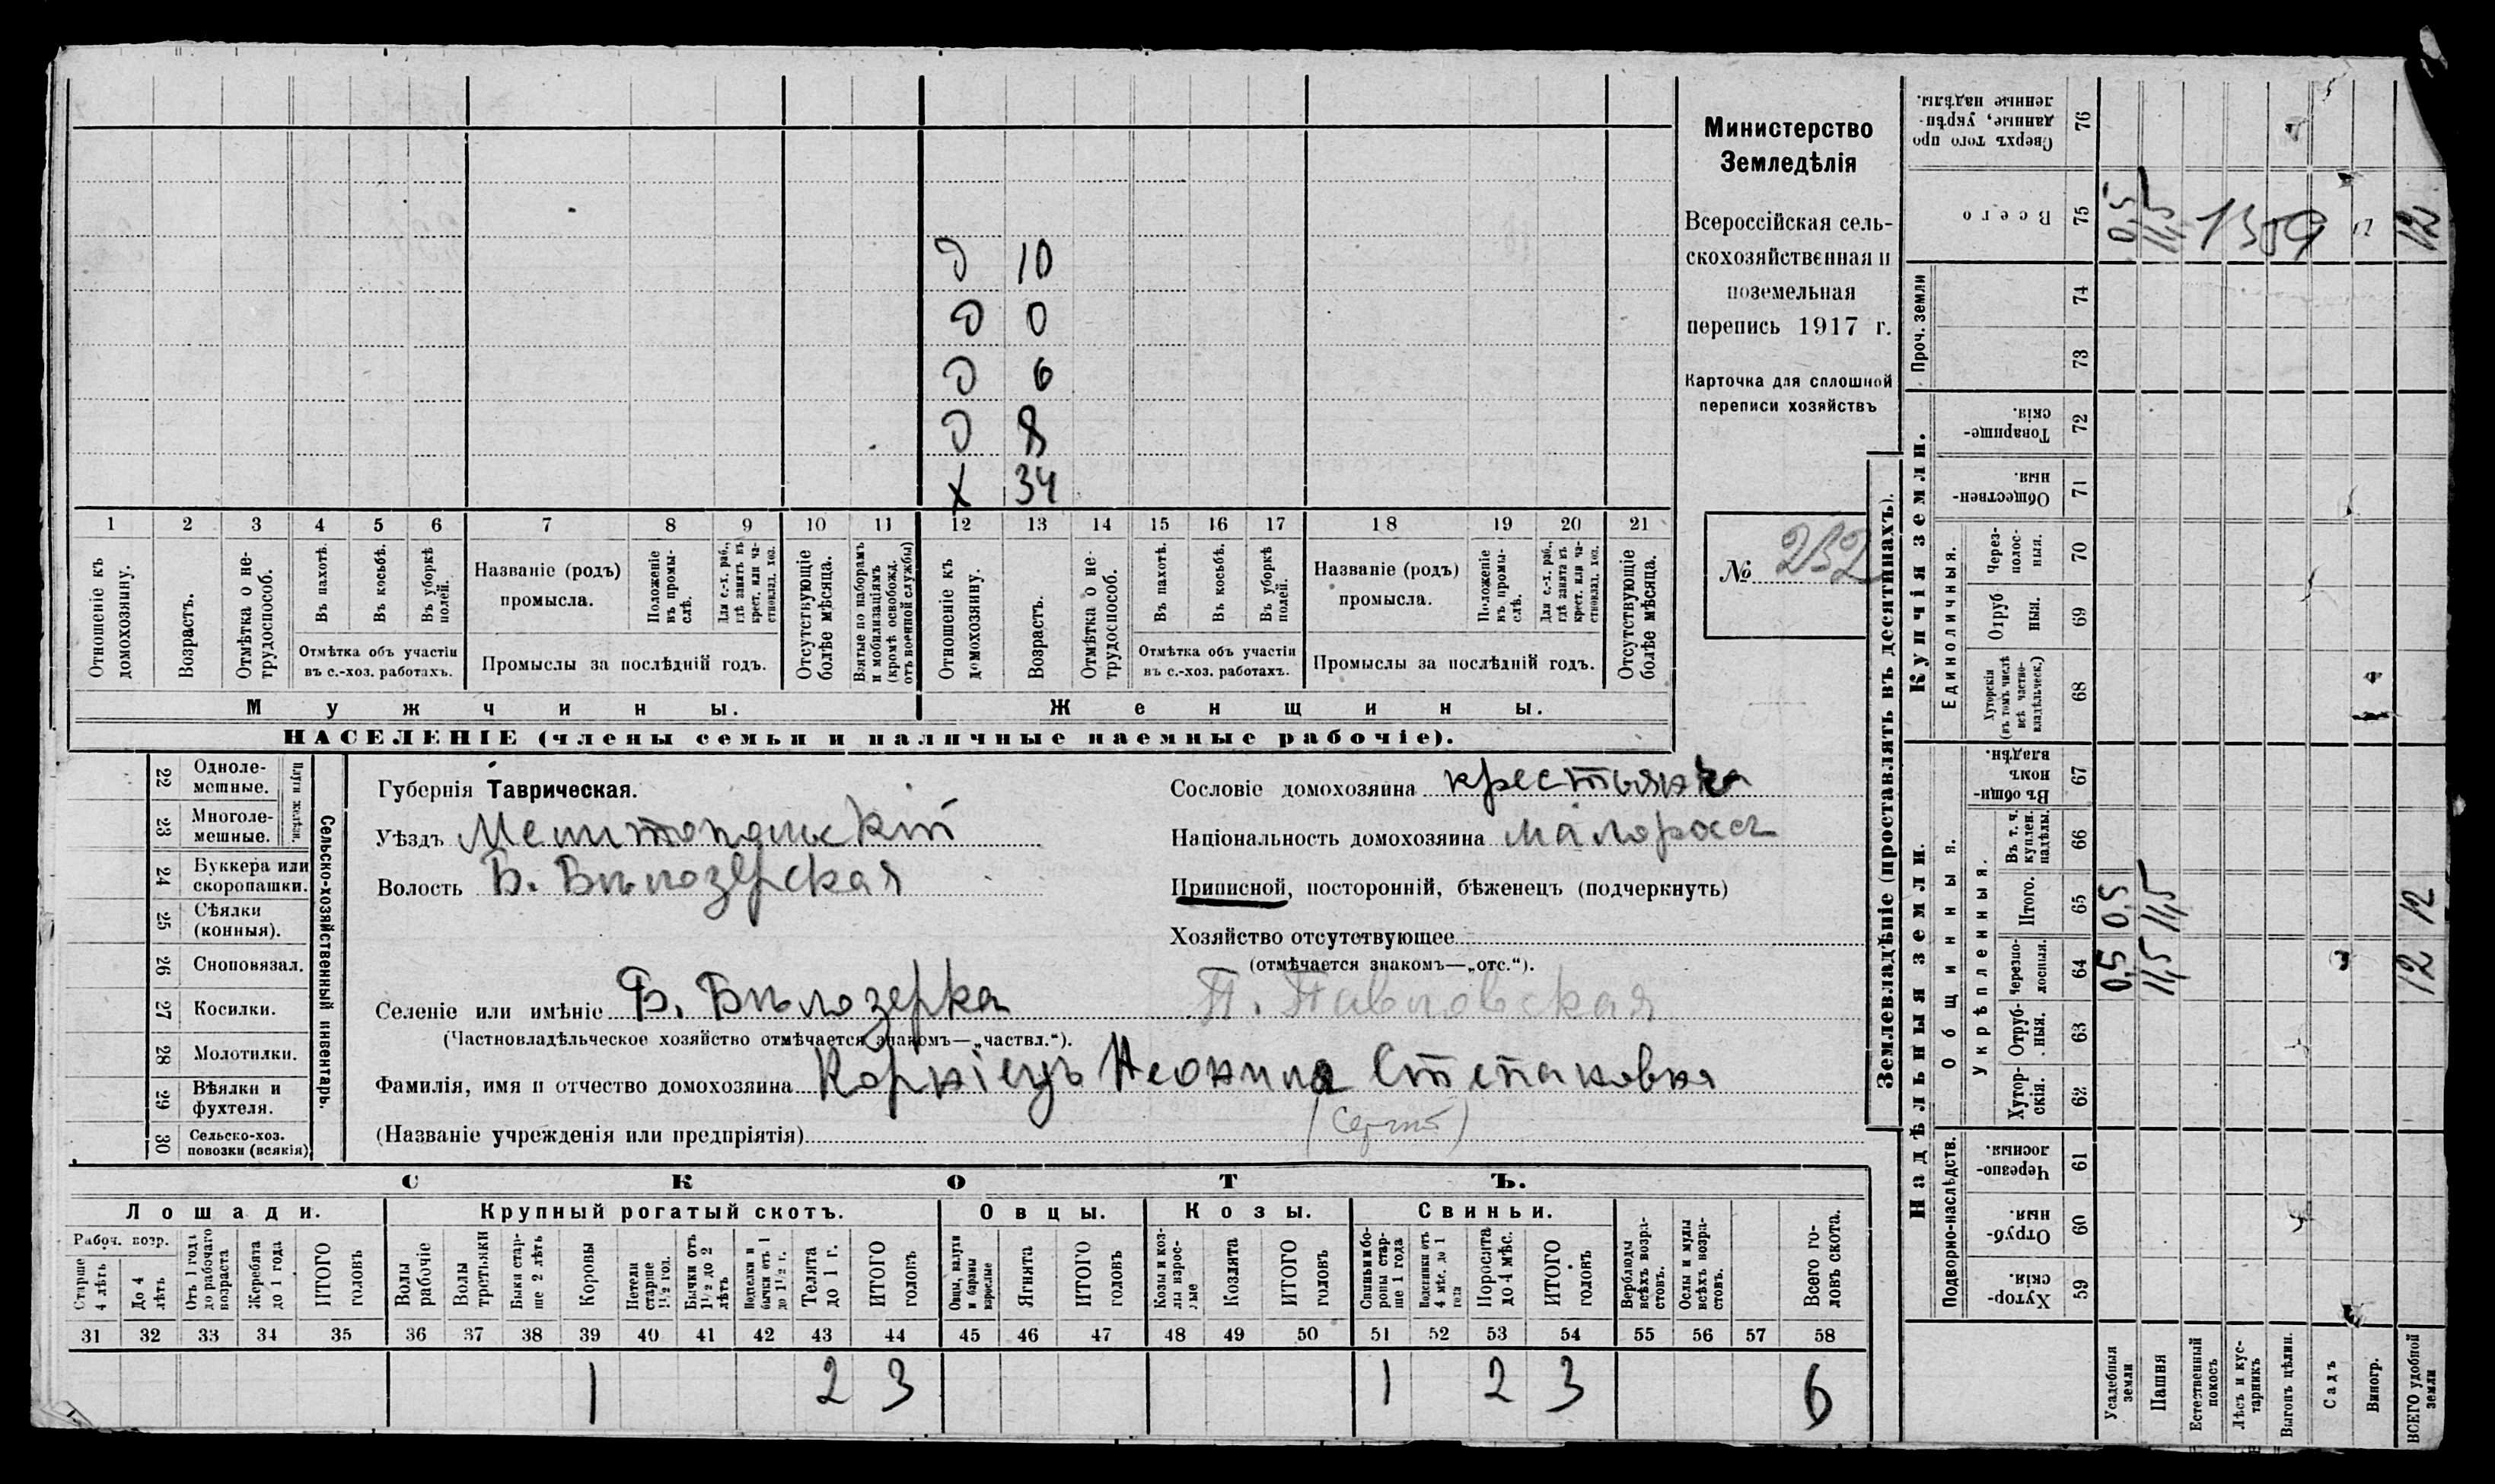 Министерство
Земледѣлія
Всероссійская сель-
скохозяйственная и
поземельная
перепись 1917 г.
Карточка для сплошной
переписи хозяйствъ
№ 232
Э 10
Э 0
Э 6
Э 8
Х 34
1 2 3 4 5 6 7 8 9 10 11 12 13 14 15 16 17 18 19 20 21
Отношеніе къ домохозяину.
Возрастъ.
Отмѣтка о не-трудоспособ.
Въ пахотѣ.
Въ косьбѣ.
Въ уборкѣ полей.
Отмѣтка объ участіи
въ с.-хоз. работахъ.
Названіе (родъ)
промысла.
Положеніе въ промы-слѣ.
Для с.-х. раб., гдѣ занятъ въ крест. или ча-стновлад. хоз.
Промыслы за послѣдній годъ.
Отсутствующіе болѣе мѣсяца.
Взятые по наборамъ и мобилизаціямъ (кромѣ освобожд. отъ военной службы)
Отношеніе къ домохозяину.
Возрастъ.
Отмѣтка о не-трудоспособ.
Въ пахотѣ.
Въ косьбѣ.
Въ уборкѣ полей.
Отмѣтка объ участіи
въ с.-хоз. работахъ.
Названіе (родъ)
промысла.
Положеніе въ промы-слѣ.
Для с.-х. раб., гдѣ занята въ крест. или ча-стновлад. хоз.
Промыслы за послѣдній годъ.
Отсутствующіе болѣе мѣсяца.
Мужчины.
Женщины.
НАСЕЛЕНІЕ (члены семьи и наличные наемные рабочіе).
Сельско-хозяйственный инвентарь.
22 Одноле-мешные.
23 Многоле-мешные.
24 Буккера или скоропашки.
25 Сѣялки (конныя).
26 Сноповязал.
27 Косилки.
28 Молотилки.
29 Вѣялки и фухтеля.
30 Сельско-хоз. повозки (всякія)
Губернія Таврическая.
Уѣздъ Мелитопольскій
Волость Б. Бѣлозерская
Сословіе домохозяина крестьянка
Національность домохозяина малоросъ
Приписной, посторонній, бѣженецъ (подчеркнуть)
Хозяйство отсутствующее
(отмѣчается знакомъ—„отс.“).
Селеніе или имѣніе Б. Бѣлозерка П. Павловская
(Частновладѣльческое хозяйство отмѣчается знакомъ—„частвл.“).
Фамилія, имя и отчество домохозяина Корніецъ Неонила Степановна
(Названіе учрежденія или предпріятія)
(Сергій)
СКОТЪ.
Лошади.
Крупный рогатый скотъ.
Овцы.
Козы.
Свиньи.
Рабоч. возр.
Старше 4 лѣтъ
До 4 лѣтъ
Отъ 1 года до рабочаго возраста
Жеребята до 1 года
ИТОГО головъ
Волы рабочіе
Волы третьяки
Быки стар-ше 2 лѣтъ
Коровы
Нетели старше 1½ год.
Бычки отъ 1½ до 2 лѣтъ
Подтелки и бычки отъ 1 до 1½ г.
Телята до 1 г.
ИТОГО головъ
Овцы, валухи и бараны взрослые
Ягнята
ИТОГО головъ
Козы и коз-лы взрос-лые
Козлята
ИТОГО головъ
Свиньи и бо-ровы стар-ше 1 года
Подсвинки отъ 4 мѣс. до 1 года
Поросята до 4 мѣс.
ИТОГО головъ
Верблюды всѣхъ возра-стовъ.
Ослы и мулы всѣхъ возра-стовъ.
Всего го-ловъ скота.
31 32 33 34 35 36 37 38 39 40 41 42 43 44 45 46 47 48 49 50 51 52 53 54 55 56 57 58
1 2 3 1 2 3 6
Землевладѣніе (проставлять въ десятинахъ).
Надѣльныя земли.
Купчія земли.
Проч. земли
Подворно-наслѣдств.
Общинныя.
Укрѣпленныя.
Единоличныя.
Сверхъ того про-данные, укрѣп-ленные надѣлы. 76
Всего 75
74
73
Товарище-скія. 72
Обществен-ныя. 71
Через-полос-ныя. 70
Отруб-ныя. 69
Хуторскія (въ томъ числѣ всѣ частно-владѣльческ.) 68
Въ общин-номъ владѣн. 67
Въ т. ч. куплен. надѣлы. 66
Итого. 65
Черезпо-лосныя. 64
Отруб-ныя. 63
Хутор-скія. 62
Черезпо-лосныя. 61
Отруб-ныя. 60
Хутор-скія. 59
Усадебныя земли
Пашня
Естественный покосъ
Лѣсъ и кус-тарникъ
Выгонъ цѣлин.
Садъ
Виногр.
ВСЕГО удобной земли
0,5 11,5 1359 12
0,5 11,5 12
0,5 11,5 12